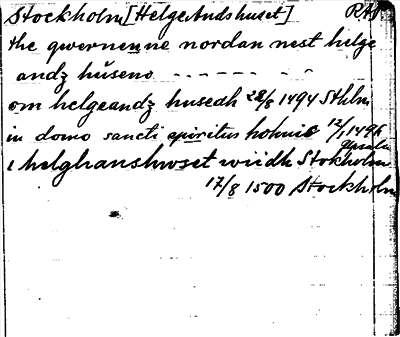 Stockholm [Helge Andshuset] RAP
the qwernenne nordan nest helge
andz húseno - - - - - - -
om helgeandz husedh 28/8 1494 Sthlm
in domo sancti spiritus holmis 12/1 1496
Upsala
i helghanshwset wiidh Stokholm
17/8 1500 Stockholm